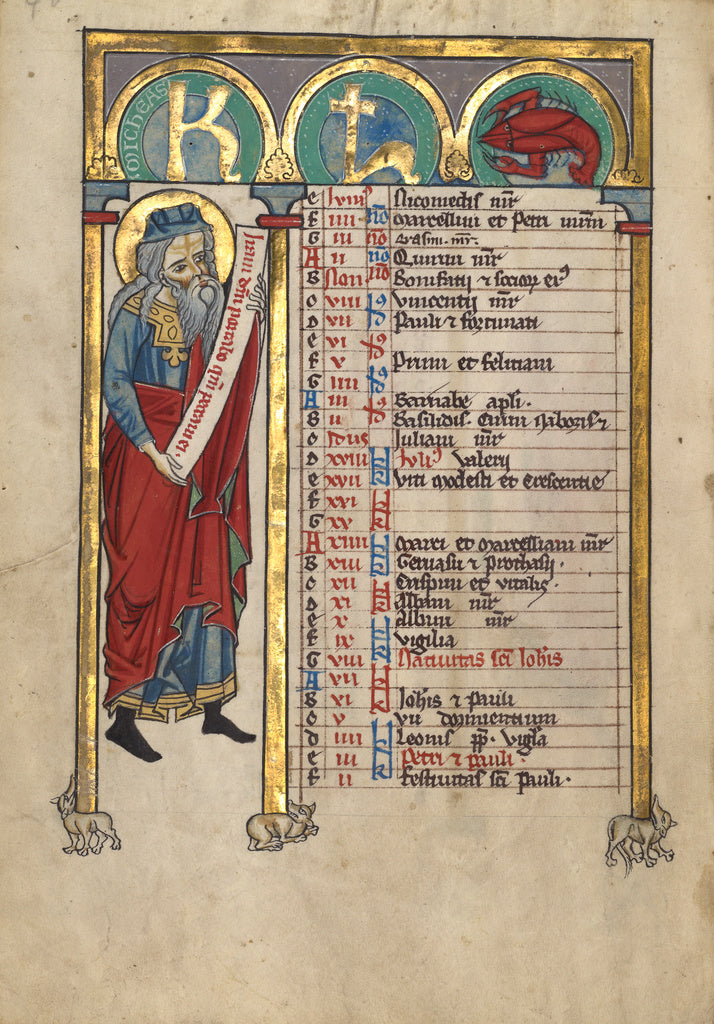 MICHEAS
KL
e
f iiii no Marcellini et Petri
G iii no
A ii no Quirini mr
B Non no Bonifatii ⁊ socior eiꝰ
c viii Vincentii mr
D vii Pauli ⁊ fortunati
e vi
f v Primi et feliciani
G iiii
A iii Barnabe apli.
B ii Basilidis. Cirini Naboris ⁊
c Idus Iuliani mr
D xviii kl Iulꝰ Valerii
e xvii kl Viti Modesti et Crescentie
f xvi kl
G xv kl
A xiiii kl Marci et Marcelliani mr
B xiii kl Geruasii ⁊ Prothasii.
c xii kl et vitalis.
D xi kl Albani mr
e x kl Albini mr
f ix kl vigilia
G viii kl Natiuitas sci Iohis
A vii kl
B vi kl Iohis ⁊ Pauli
c v kl vii dormientium
d iiii kl Leonis pp. vigla
e iii kl Petri ⁊ pauli.
f ii kl festiuitas sci Pauli.